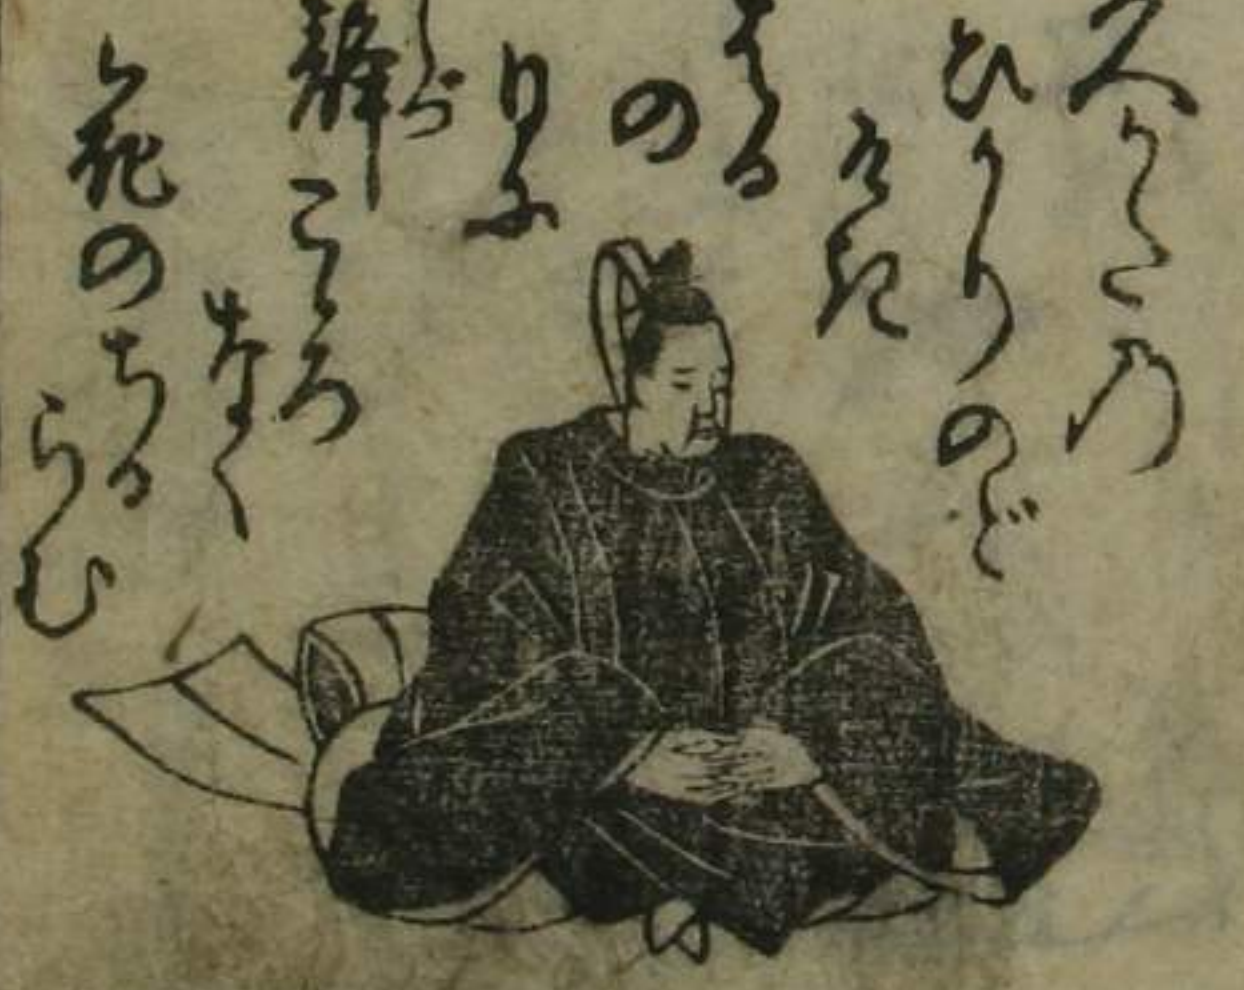 久かた乃
ひかりのど
け起
はる
の
日に
しづ
静こゝろ
なく
花のちる
らむ